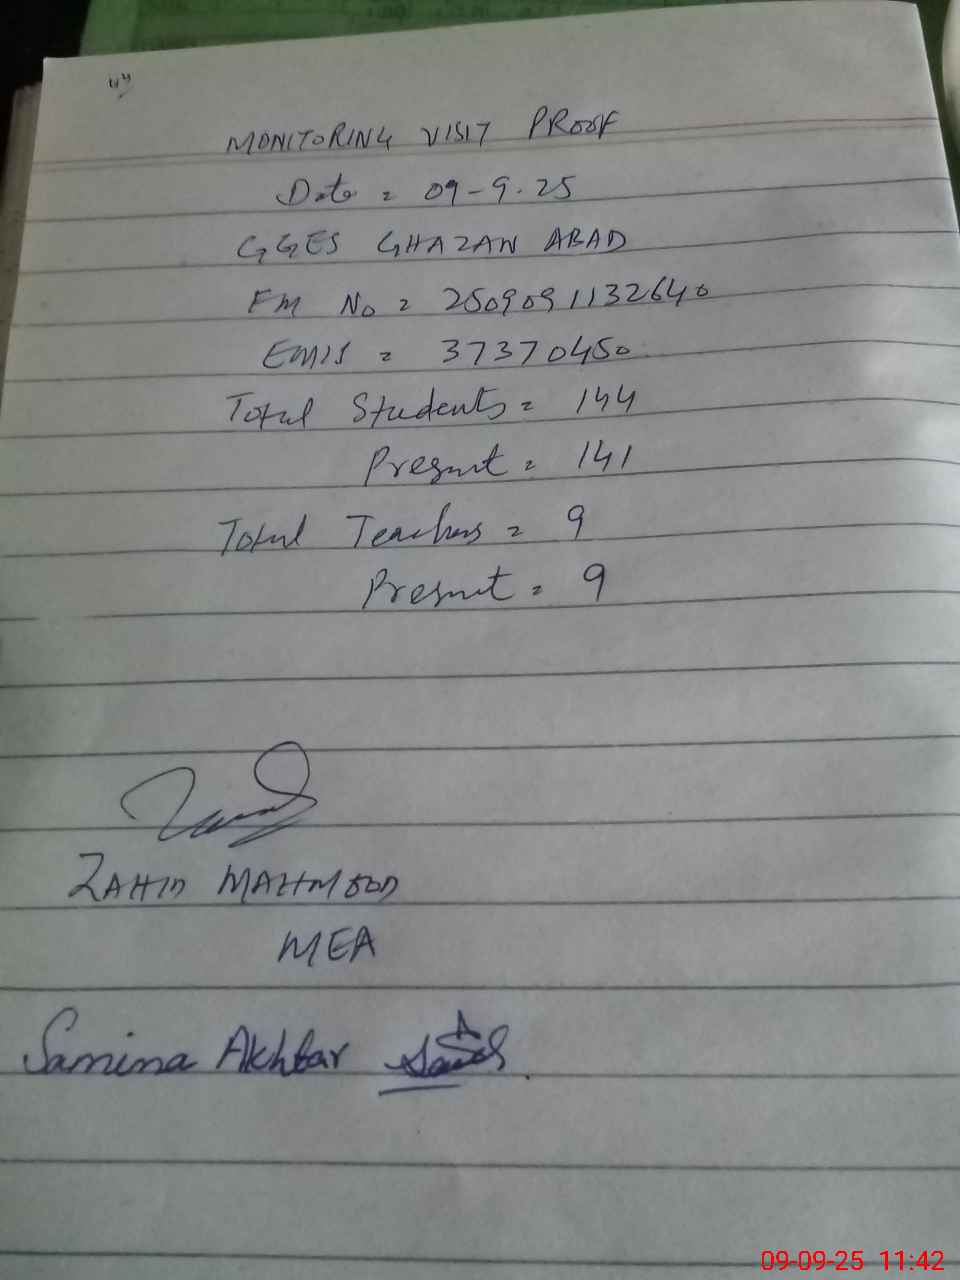 MONITORING VISIT PROOF
Date = 09-9.25
GGES GHAZAN ABAD
FM No = 2509091132640
EMIS = 37370450
Total Students = 144
Present = 141
Total Teachers = 9
Present = 9
ZAHID MAHMOOD
MEA
Samina Akhtar
09-09-25 11:42